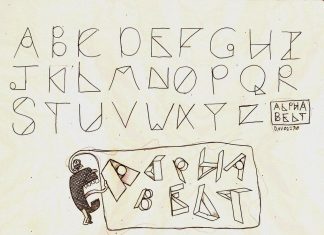 ABC DEFGHI
JKLMNOPQR
STUVWXYZ
ALPHA
BEAT
ALPHA
BEAT